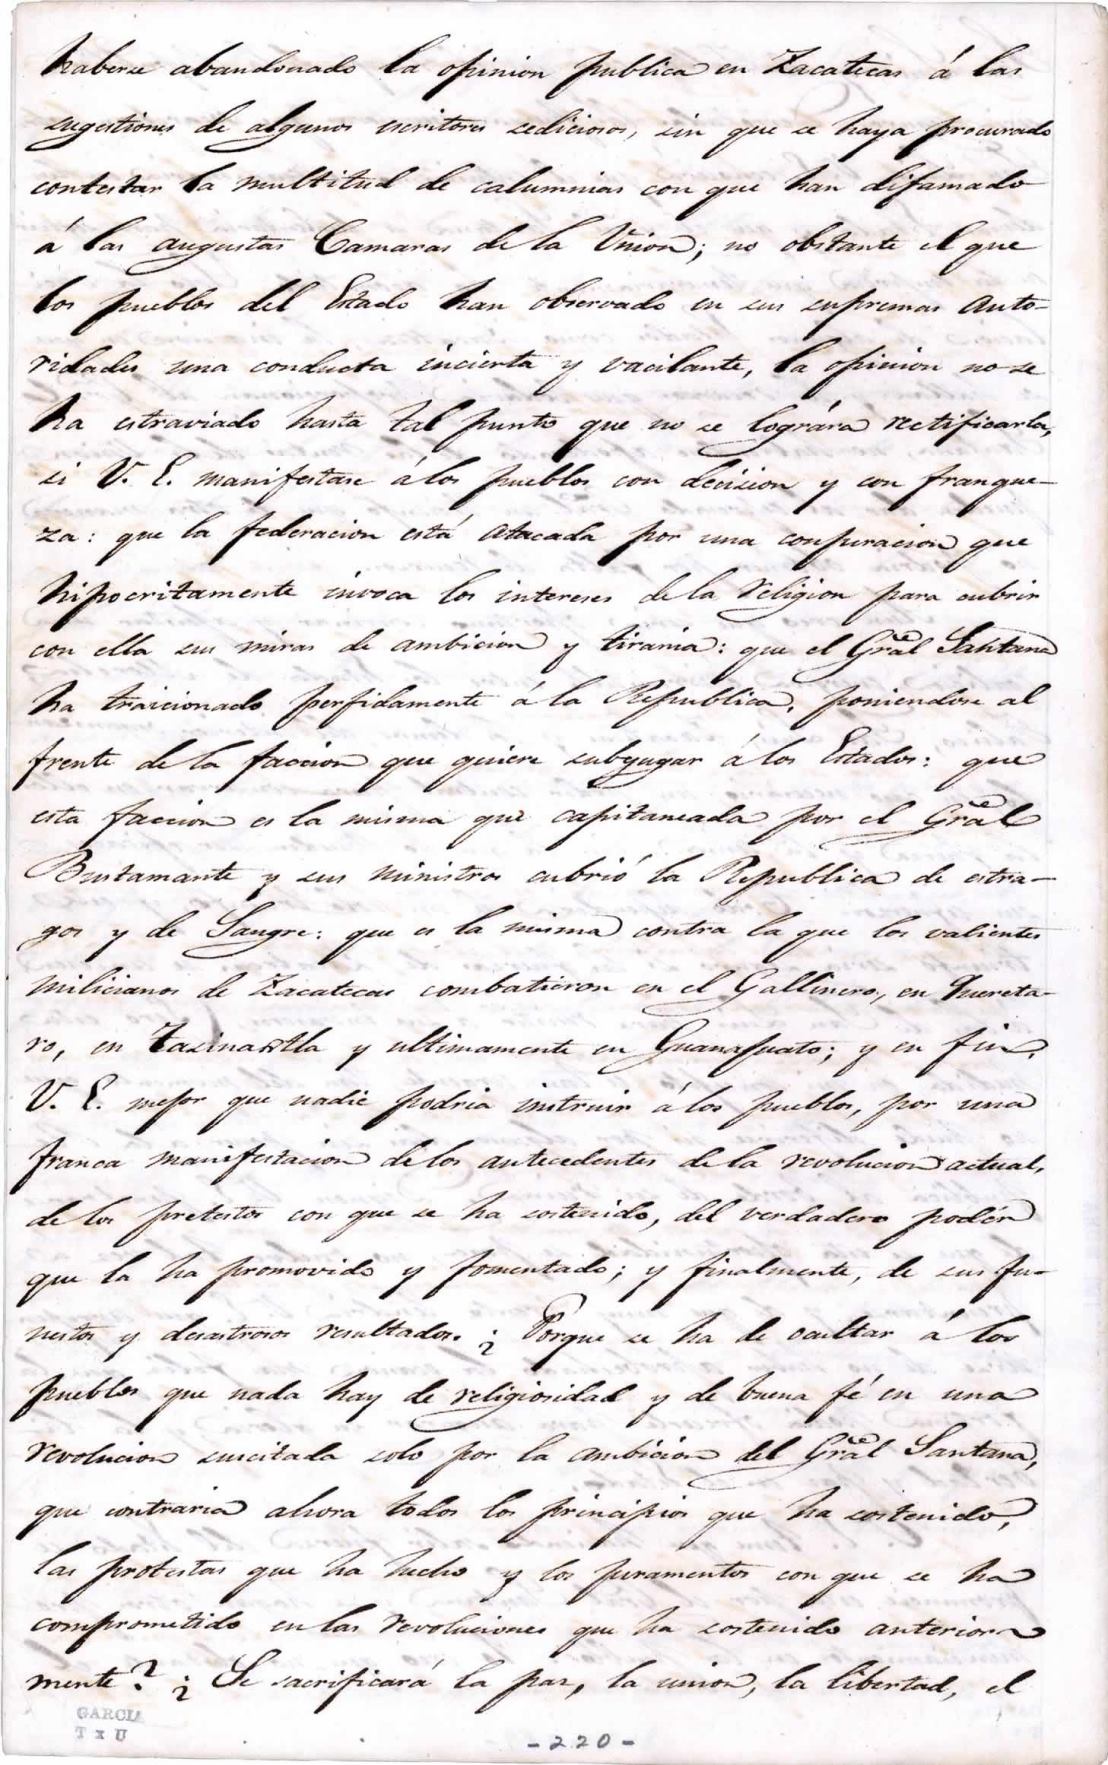 haberse abandonado la opinion publica en Zacatecas á las
sugestiones de algunos escritores sediciosos, sin que se haya procurado
contestar la multitud de calumnias con que han difamado
á las augustas Camaras de la Union; no obstante el que
los pueblos del Estado han observado en sus supremas Auto-
ridades una conducta incierta y vacilante, la opinion no se
ha estraviado hasta tal punto que no se lográra rectificarla,
si V. E. manifestase á los pueblos con decision y con franque-
za: que la federacion está atacada por una conjuracion que
hipocritamente invoca los intereses de la religion para cubrir
con ella sus miras de ambicion y tirania: que el Gral Santana
ha traicionado perfidamente á la Republica, poniendose al
frente de la faccion que quiere subyugar á los Estados: que
esta faccion es la misma que capitaneada por el Gral
Bustamante y sus ministros cubrió la Republica de estra-
gos y de Sangre: que es la misma contra la que los valientes
milicianos de Zacatecas combatieron en el Gallinero, en Quereta-
ro, en y ultimamente en Guanajuato; y en fin,
V. E. mejor que nadie podria instruir á los pueblos, por una
franca manifestacion de los antecedentes de la revolucion actual,
de los pretestos con que se ha sostenido, del verdadero podér
que la ha promovido y fomentado; y finalmente, de sus fu-
nestos y desastrosos resultados. ¿ Porque se ha de ocultar á los
pueblos que nada hay de religiosidad y de buena fé en una
revolucion suscitada solo por la ambicion del Gral Santana,
que contraria ahora todos los principios que ha sostenido,
las protestas que ha hecho y los juramentos con que se ha
comprometido en las revoluciones que ha sostenido anterior-
mente? ¿ Se sacrificará la paz, la union, la libertad, el
GARCIA
T x U
-220-